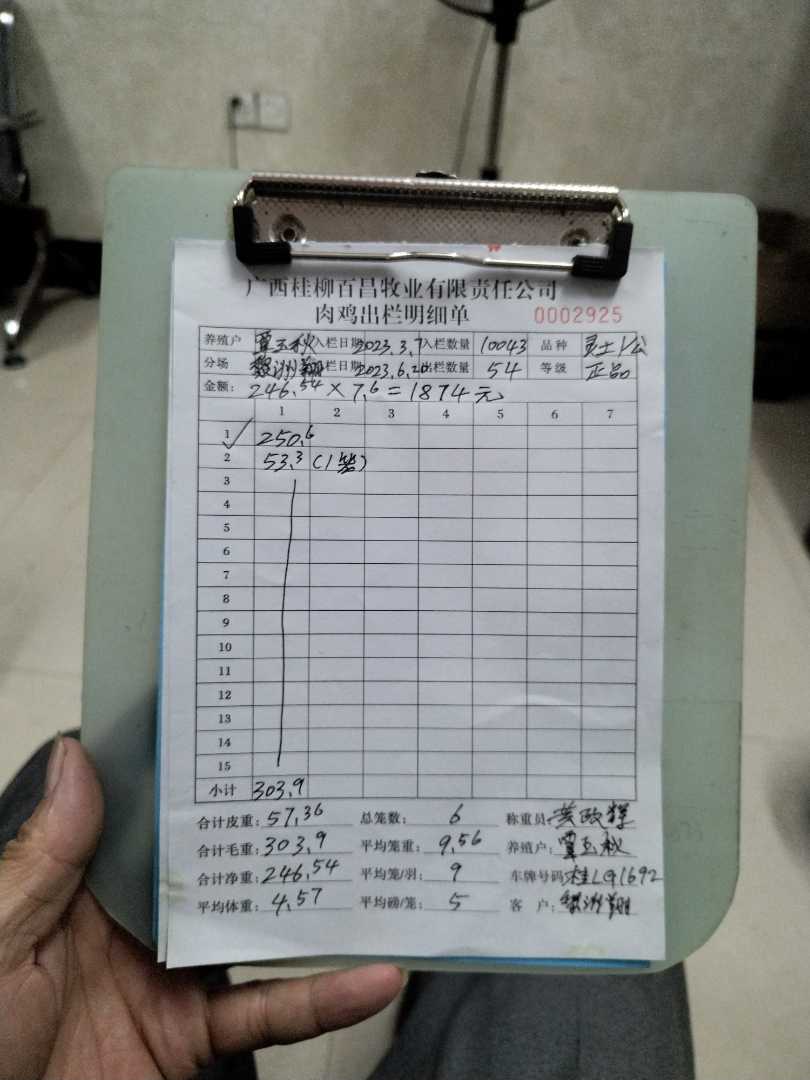 广西桂柳百昌牧业有限责任公司
肉鸡出栏明细单 0002925
养殖户 覃玉秋 入栏日期 2023.3.7 入栏数量 10043 品种
分场 黎洲翔 出栏日期 2023.6.20 出栏数量 54 等级 正品
金额: 246.54×7.6=1874元
1 2 3 4 5 6 7
1 250.6
2 53.3 (1笼)
3
4
5
6
7
8
9
10
11
12
13
14
15
小计 303.9
合计皮重: 57.36 总笼数: 6 称重员: 黄政辉
合计毛重: 303.9 平均笼重: 9.56 养殖户: 覃玉秋
合计净重: 246.54 平均笼/羽: 9 车牌号码: 桂LG1692
平均体重: 4.57 平均磅/笼: 5 客户: 黎洲翔